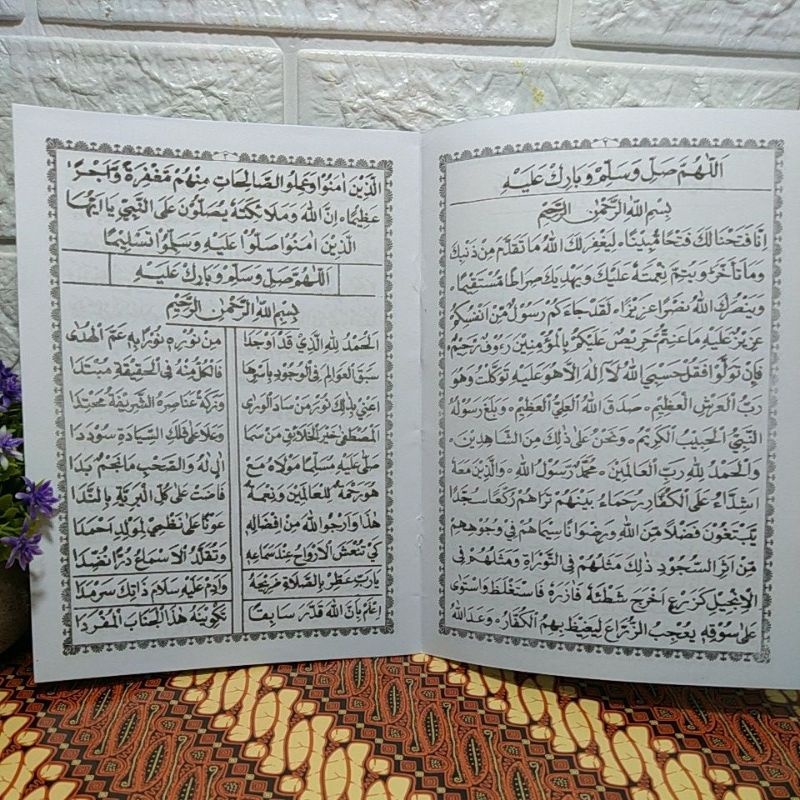 ٢
اَللّٰهُمَّ صَلِّ وَسَلِّمْ وَبَارِكْ عَلَيْهِ
بِسْمِ اللهِ الرَّحْمٰنِ الرَّحِيْمِ
اِنَّا فَتَحْنَا لَكَ فَتْحًا مُبِيْنًا ۞ لِيَغْفِرَ لَكَ اللهُ مَا تَقَدَّمَ مِنْ ذَنْبِكَ
وَمَا تَأَخَّرَ وَيُتِمَّ نِعْمَتَهُ عَلَيْكَ وَيَهْدِيَكَ صِرَاطًا مُسْتَقِيْمًا ۞
وَيَنْصُرَكَ اللهُ نَصْرًا عَزِيْزًا ۞ لَقَدْ جَاءَكُمْ رَسُوْلٌ مِنْ اَنْفُسِكُمْ
عَزِيْزٌ عَلَيْهِ مَا عَنِتُّمْ حَرِيْصٌ عَلَيْكُمْ بِالْمُؤْمِنِيْنَ رَءُوْفٌ رَحِيْمٌ
فَاِنْ تَوَلَّوْا فَقُلْ حَسْبِيَ اللهُ لَا اِلٰهَ اِلَّا هُوَ عَلَيْهِ تَوَكَّلْتُ وَهُوَ
رَبُّ الْعَرْشِ الْعَظِيْمِ ۞ صَدَقَ اللهُ الْعَلِيُّ الْعَظِيْمُ ۞ وَبَلَّغَ رَسُوْلُهُ
النَّبِيُّ الْحَبِيْبُ الْكَرِيْمُ ۞ وَنَحْنُ عَلَى ذٰلِكَ مِنَ الشَّاهِدِيْنَ ۞
وَالْحَمْدُ لِلّٰهِ رَبِّ الْعَالَمِيْنَ ۞ مُحَمَّدٌ رَسُوْلُ اللهِ ۞ وَالَّذِيْنَ مَعَهُ
اَشِدَّاءُ عَلَى الْكُفَّارِ رُحَمَاءُ بَيْنَهُمْ تَرَاهُمْ رُكَّعًا سُجَّدًا
يَبْتَغُوْنَ فَضْلًا مِنَ اللهِ وَرِضْوَانًا سِيْمَاهُمْ فِي وُجُوْهِهِمْ
مِنْ اَثَرِ السُّجُوْدِ ذٰلِكَ مَثَلُهُمْ فِي التَّوْرَاةِ وَمَثَلُهُمْ فِي
الْاِنْجِيْلِ كَزَرْعٍ اَخْرَجَ شَطْئَهُ فَاٰزَرَهُ فَاسْتَغْلَظَ فَاسْتَوَى
عَلَى سُوْقِهِ يُعْجِبُ الزُّرَّاعَ لِيَغِيْظَ بِهِمُ الْكُفَّارَ ۞ وَعَدَ اللهُ
٣
الَّذِيْنَ اٰمَنُوْا وَعَمِلُوا الصَّالِحَاتِ مِنْهُمْ مَغْفِرَةً وَاَجْرًا
عَظِيْمًا ۞ اِنَّ اللهَ وَمَلَائِكَتَهُ يُصَلُّوْنَ عَلَى النَّبِيِّ يَا اَيُّهَا
الَّذِيْنَ اٰمَنُوْا صَلُّوْا عَلَيْهِ وَسَلِّمُوْا تَسْلِيْمًا
اَللّٰهُمَّ صَلِّ وَسَلِّمْ وَبَارِكْ عَلَيْهِ
بِسْمِ اللهِ الرَّحْمٰنِ الرَّحِيْمِ
اَلْحَمْدُ لِلّٰهِ الَّذِيْ قَدْ اَوْجَدَا مِنْ نُوْرِهِ نُوْرًا بِهِ عَمَّ الْهُدٰى
سَبَقَ الْعَوَالِمَ فِي الْوُجُوْدِ بِاَسْرِهَا فَالْكُلُّ مِنْهُ فِي الْحَقِيْقَةِ مُبْتَدَا
اَعْنِيْ بِذٰلِكَ نُوْرَ مَنْ سَادَ الْوَرٰى وَزَكَتْ عَنَاصِرُهُ الشَّرِيْفَةُ مَحْتِدَا
الْمُصْطَفٰى خَيْرَ الْخَلَائِقِ مَنْ سَمَا وَعَلَا عَلٰى فَلَكِ السِّيَادَةِ سُوْدَدَا
صَلَّى عَلَيْهِ مُسَلِّمًا مَوْلَاهُ مَعْ اٰلٍ لَهُ وَالصَّحْبِ مَا نَجْمٌ بَدَا
هُوَ رَحْمَةٌ لِلْعَالَمِيْنَ وَنِعْمَةٌ فَاضَتْ عَلٰى كُلِّ الْبَرِيَّةِ بِالنَّدَا
هٰذَا وَاَرْجُو اللهَ مِنْ اِفْضَالِهِ عَوْنًا عَلٰى نَظْمِيْ لِمَوْلِدِ اَحْمَدَا
كَيْ تَنْعَشَ الْاَرْوَاحُ عِنْدَ سَمَاعِهِ وَتُقَلَّدَ الْاَسْمَاعُ دُرًّا نُضِّدَا
يَا رَبِّ عَطِّرْ بِالصَّلَاةِ ضَرِيْحَهُ وَاَدِمْ عَلَيْهِ سَلَامَ ذَاتِكَ سَرْمَدَا
اِعْلَمْ بِاَنَّ اللهَ قَدَّرَ سَابِقًا تَكْوِيْنَهُ هٰذَا الْجَنَابَ الْمُفْرَدَا